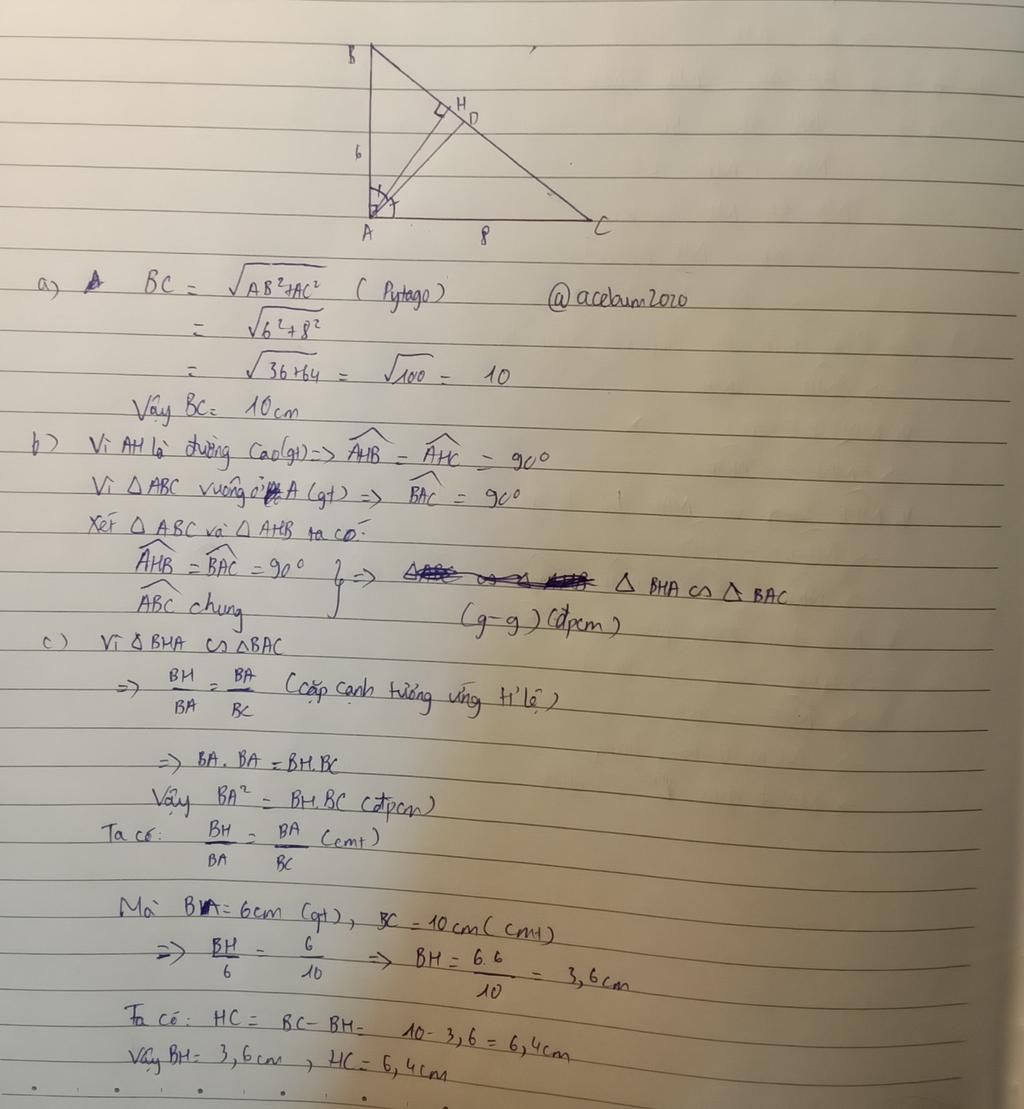 B
H
D
6
A
8
C
a) BC = √(AB²+AC²) (Pytago) @acebum2020
= √(6²+8²)
= √(36+64) = √100 = 10
Vậy BC= 10cm
b) Vì AH là đường cao(gt) => AHB^ = AHC^ = 90°
Vì △ABC vuông ở A (gt) => BAC^ = 90°
Xét △ABC và △AHB ta có:
AHB^ = BAC^ = 90° } => △BHA ∽ △BAC
ABC^ chung (g-g) (đpcm)
c) Vì △BHA ∽ △BAC
=> BH/BA = BA/BC (cặp cạnh tương ứng tỉ lệ)
=> BA.BA = BH.BC
Vậy BA² = BH.BC (đpcm)
Ta có: BH/BA = BA/BC (cmt)
Mà BA= 6cm (gt), BC = 10cm (cmt)
=> BH/6 = 6/10 => BH = 6.6/10 = 3,6cm
Ta có: HC = BC - BH = 10 - 3,6 = 6,4cm
Vậy BH= 3,6cm, HC = 6,4cm